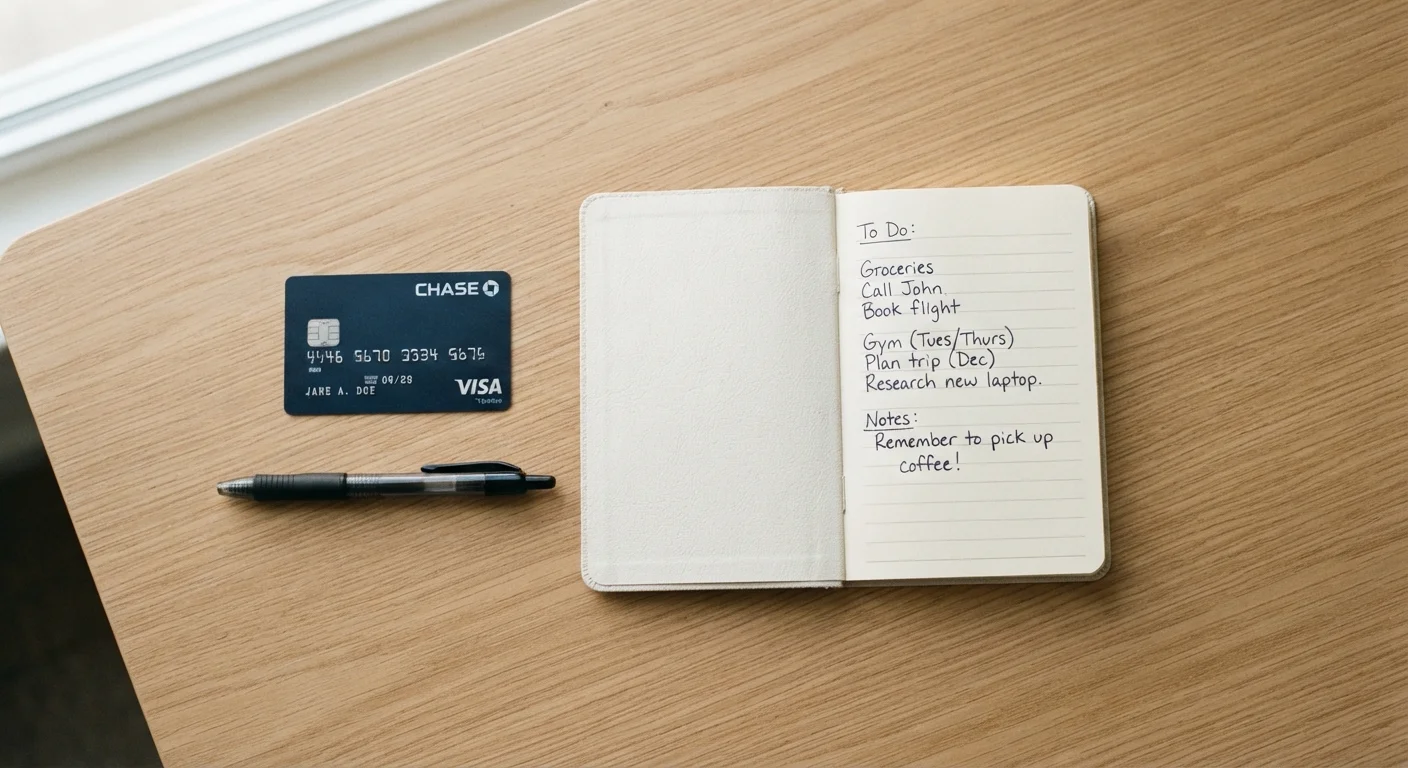 CHASE
5670 3334
A.
VISA
To Do:
Groceries
Call John.
Book flight
Gym (Tues/Thurs)
Plan trip (Dec)
Research new laptop.
Notes:
Remember to pick up
coffee!